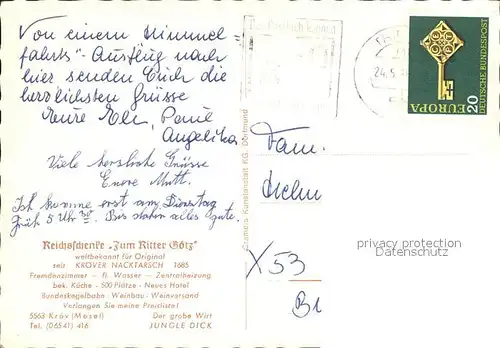 Von einem Himmel=
fahrts"-Ausflug nach
hier senden Euch die
herzlichsten Grüsse
Eure Elr, Paul
Angelika
Viele herzliche Grüsse
Eure Mutt.
Ich komme erst am Dienstag
früh 5 Uhr 30. Bis dahin alles Gute.
Reichsschenke „Zum Ritter Götz"
weltbekannt für Original
seit KRÖVER NACKTARSCH 1685
Fremdenzimmer — fl. Wasser — Zentralheizung
bek. Küche - 500 Plätze - Neues Hotel
Bundeskegelbahn - Weinbau - Weinversand
Verlangen Sie meine Preisliste!
5563 Kröv (Mosel) Der grobe Wirt
Tel. (06541) 416 JUNGLE DICK
Kunstanstalt KG, Dortmund
24.5.
EUROPA
20
DEUTSCHE BUNDESPOST
Fam.
privacy protection
Datenschutz
X 53